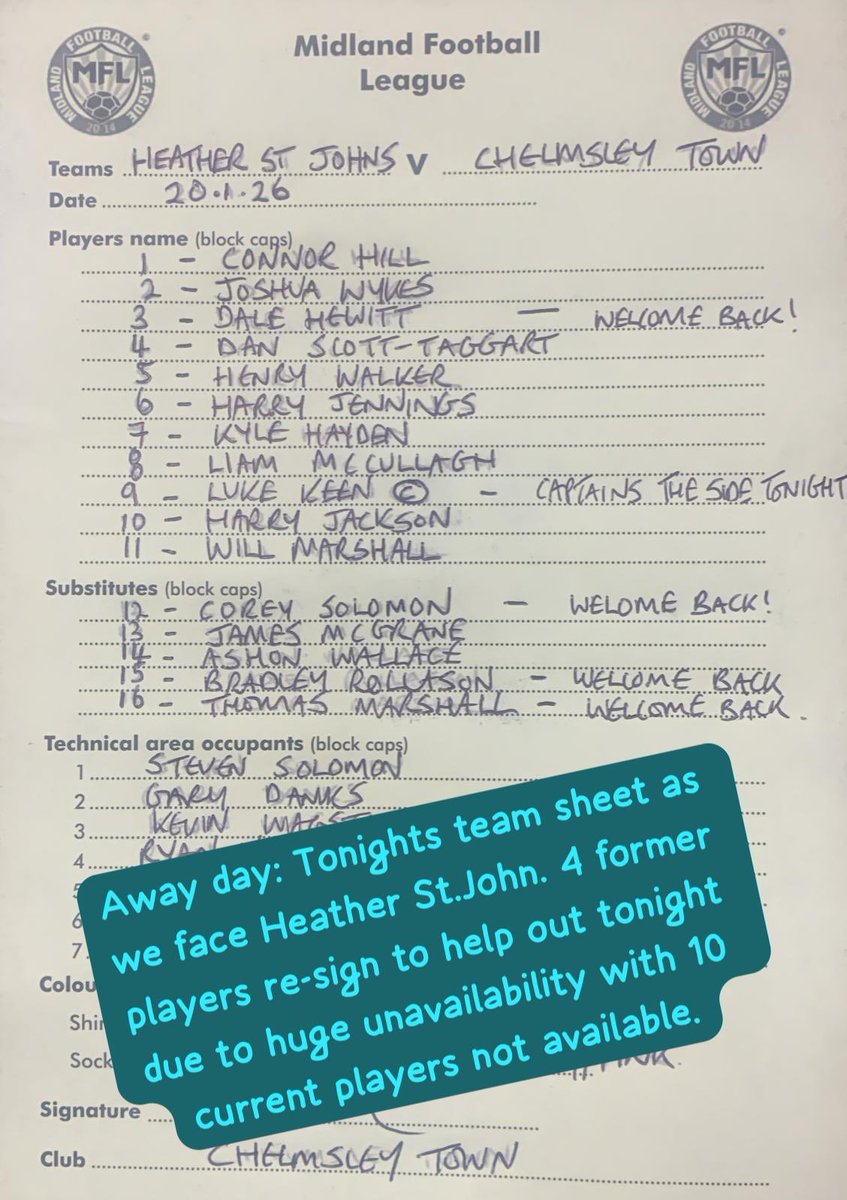 MIDLAND FOOTBALL LEAGUE
MFL
2014
Midland Football
League
MIDLAND FOOTBALL LEAGUE
MFL
2014
Teams HEATHER ST JOHNS V CHELMSLEY TOWN
Date 20.1.26
Players name (block caps)
1 - CONNOR HILL
2 - JOSHUA WYKES
3 - DALE HEWITT — WELCOME BACK!
4 - DAN SCOTT-TAGGART
5 - HENRY WALKER
6 - HARRY JENNINGS
7 - KYLE HAYDEN
8 - LIAM MCCULLAGH
9 - LUKE KEEN © - CAPTAINS THE SIDE TONIGHT
10 - HARRY JACKSON
11 - WILL MARSHALL
Substitutes (block caps)
12 - COREY SOLOMON - WELOME BACK!
13 - JAMES MCGRANE
14 - ASHON WALLACE
15 - BRADLEY ROLLASON - WELCOME BACK
16 - THOMAS MARSHALL - WELCOME BACK.
Technical area occupants (block caps)
1 STEVEN SOLOMON
2 GARY DANKS
3 KEVIN
4 RYAN
6
7
Away day: Tonights team sheet as
we face Heather St.John. 4 former
players re-sign to help out tonight
due to huge unavailability with 10
current players not available.
Colou
Shir
Sock
Signature
Club CHELMSLEY TOWN